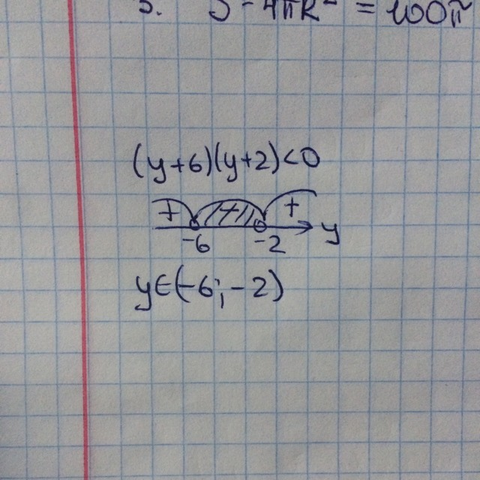 5. S = 4πR² = 100π
(y+6)(y+2)<0
+ - +
-6 -2 y
y∈(-6;-2)